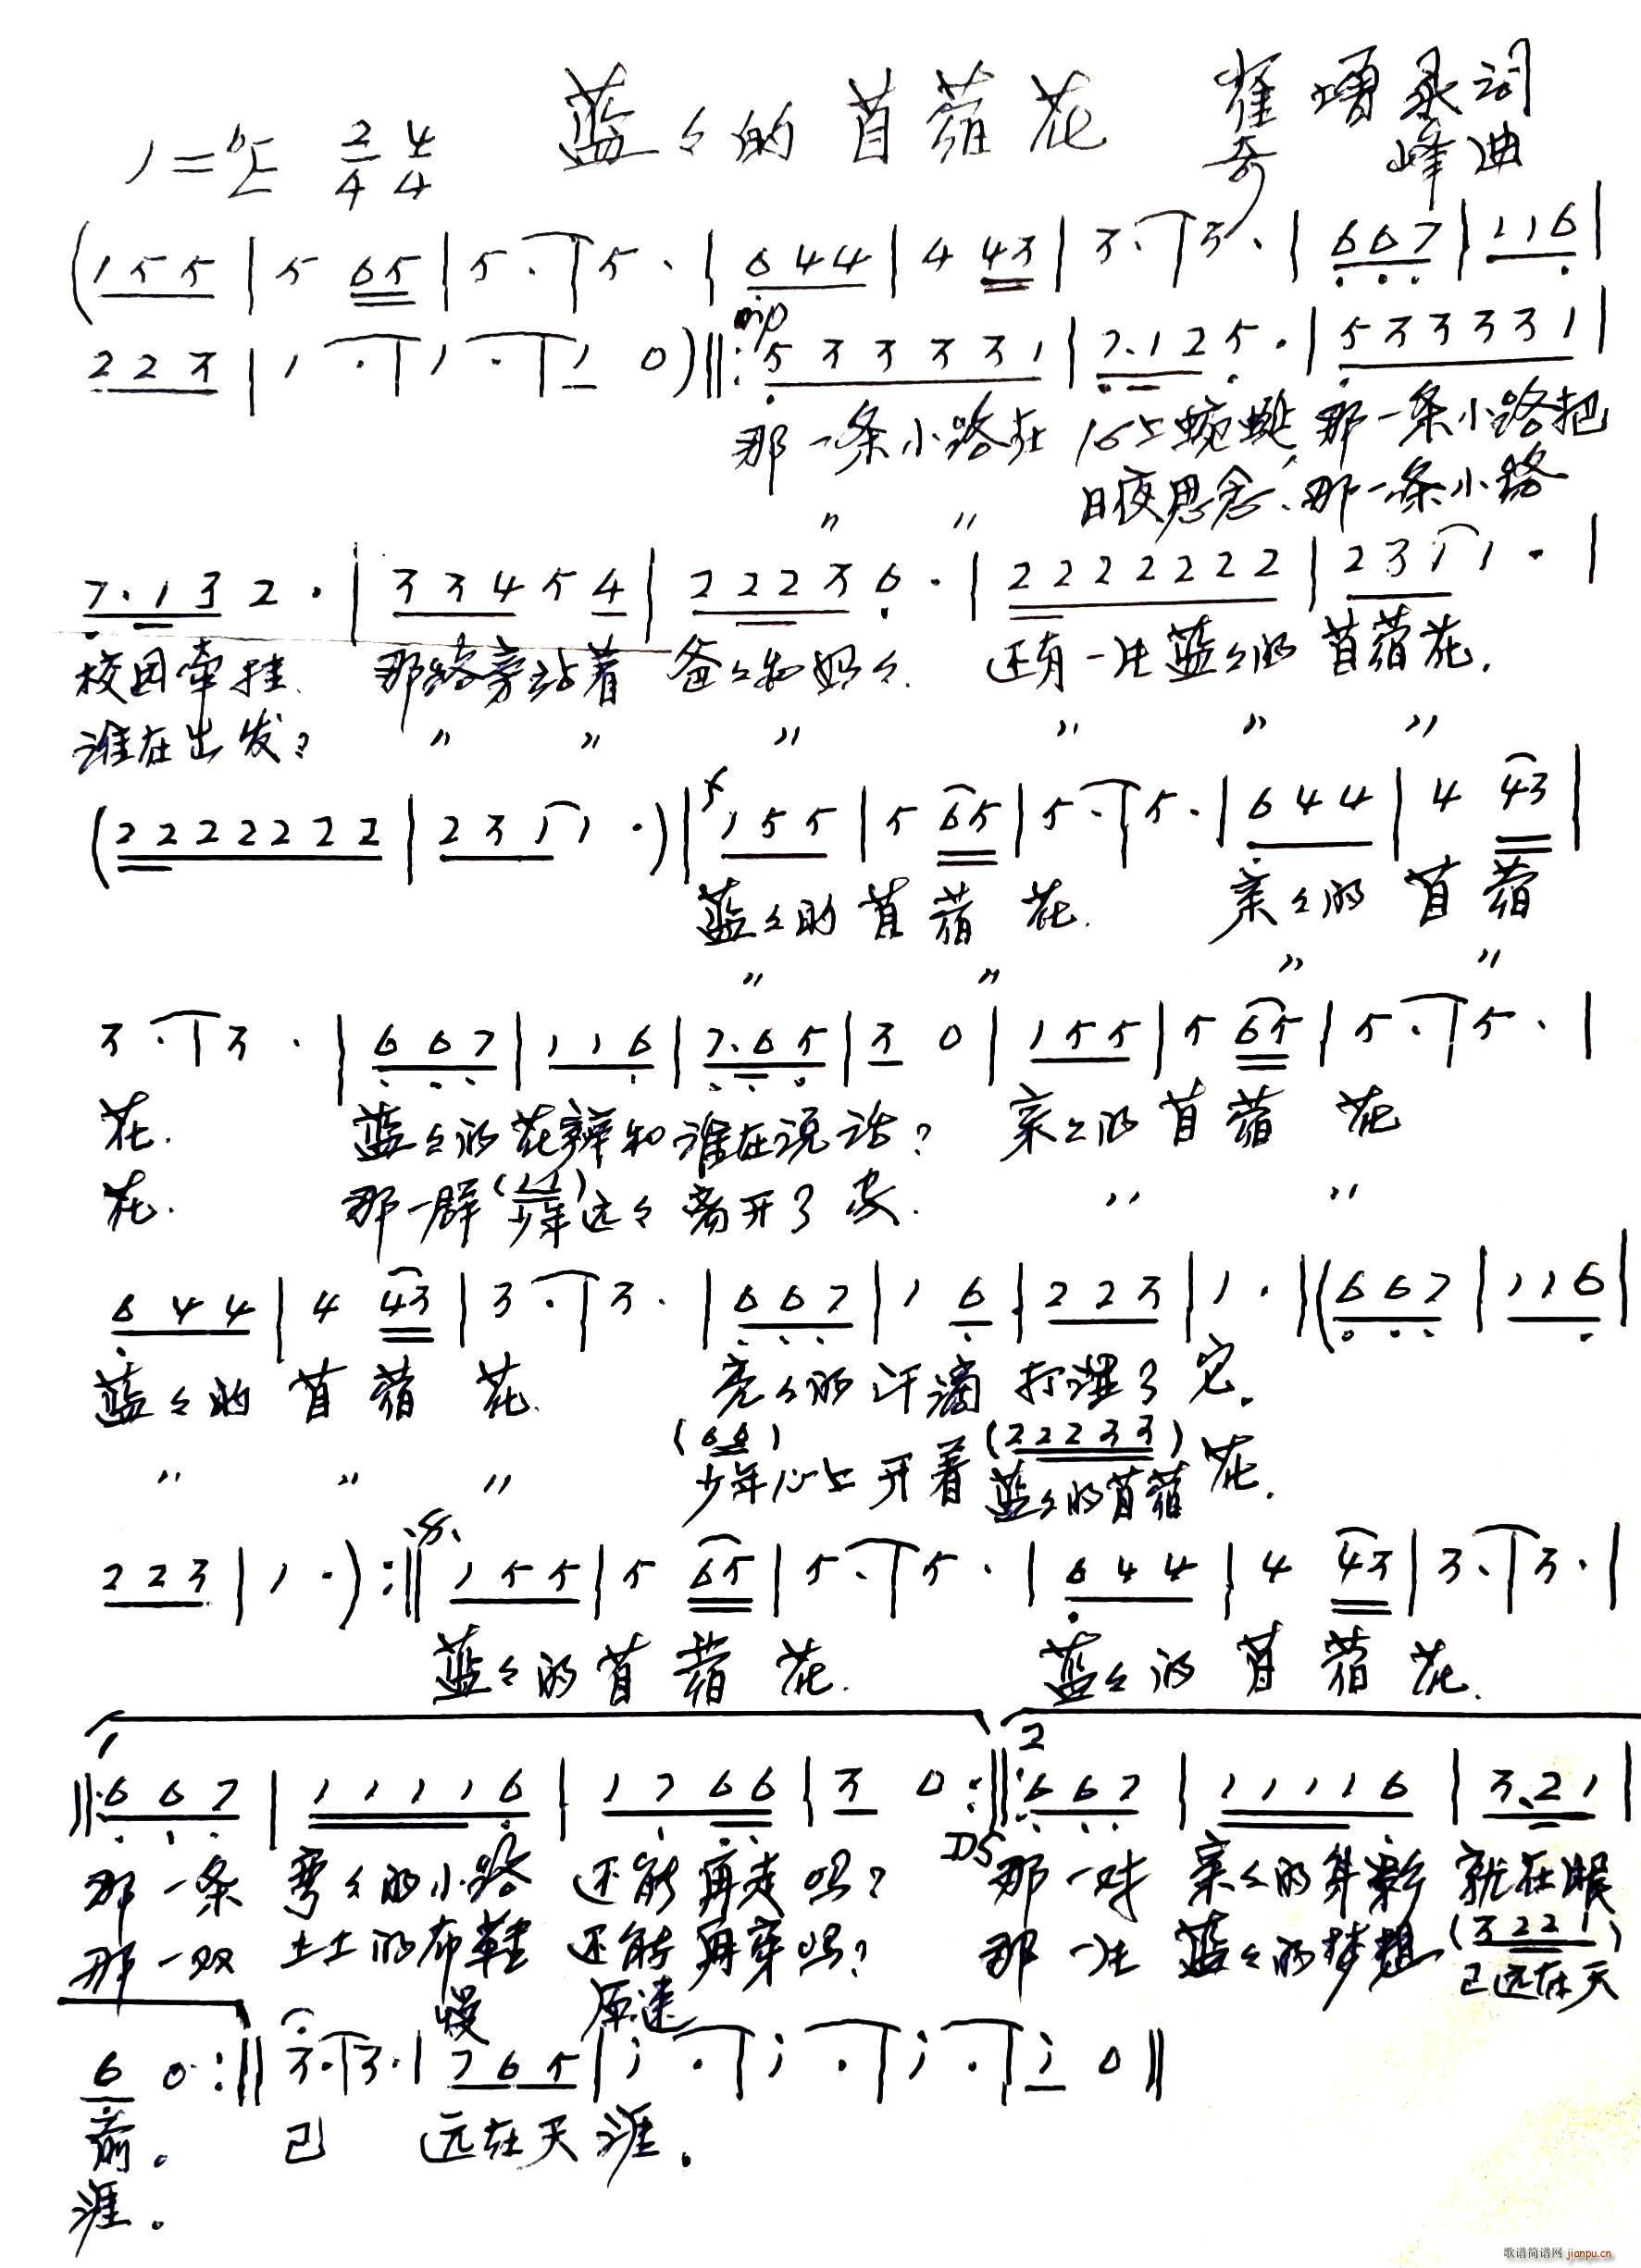 蓝々的苜蓿花 崔增录词
1=♭E 2/4 4/4 奇峰曲
(1 5 5 | 5 65 | 5 · | 5 · | 6 4 4 | 4 43 | 3 · | 3 · | 6 6 7 | 1 1 6 |
2 2 3 | 1 · | 1 · | 1 0) ‖: mp 5 3 3 3 3 1 | 7·1 2 5 · | 5 3 3 3 3 1 |
那一条小路在 心上蜿蜒,那一条小路把
〃 〃 日夜思念、那一条小路
7·1 3 2 · | 3 3 4 5 4 | 2 2 2 3 6 · | 2 2 2 2 2 2 2 | 2 3 1 1 · |
校园牵挂. 那路旁站着 爸々和妈々. 还有一片蓝々的 苜蓿花.
谁在出发? 〃 〃 〃 〃 〃 〃
(2 2 2 2 2 2 2 | 2 3 1 1 ·) | f 1 5 5 | 5 65 | 5 · | 5 · | 6 4 4 | 4 43 |
蓝々的 苜 蓿 花. 亲々的 苜 蓿
〃 〃 〃 〃
3 · | 3 · | 6 6 7 | 1 1 6 | 7·6 5 | 3 0 | 1 5 5 | 5 65 | 5 · | 5 · |
花. 蓝々的花瓣和谁在说话? 亲々的 苜 蓿 花
花. 那一群(11)少年远々离开了家. 〃 〃
6 4 4 | 4 43 | 3 · | 3 · | 6 6 7 | 1 6 | 2 2 3 | 1 · | (6 6 7 | 1 1 6 |
蓝々的 苜 蓿 花. 亮々的 汗滴 打湿了 它.
〃 〃 〃 (66)少年心上 开着 (22233)蓝々的苜蓿 花.
2 2 3 | 1 ·) :‖ 1 5 5 | 5 65 | 5 · | 5 · | 6 4 4 | 4 43 | 3 · | 3 · |
蓝々的 苜 蓿 花. 蓝々的 苜 蓿 花.
1 2
‖: 6 6 7 | 1 1 1 1 6 | 1 7 6 6 | 3 0 :‖: 6 6 7 | 1 1 1 1 6 | 3·2 1 |
DS
那一条 弯々的小路 还能再走吗? 那一对 亲々的身影 就在眼
那一双 土土的布鞋 还能再穿吗? 那一片 蓝々的梦想 (3221)已远在天
慢 原速
6 0 :‖ 3 · | 3 · | 7 6 5 | i · | i · | i · | i 0 ‖
前。 已 远在天涯.
涯。
歌谱简谱网 jianpu.cn